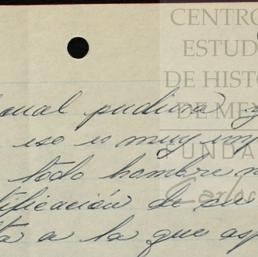 CENTRO
ESTUD
DE HISTO
DE ME
FUNDA
Carlos
onal pudiera
eso es muy imp
todo hombre
tificación de su
ta a la que asp